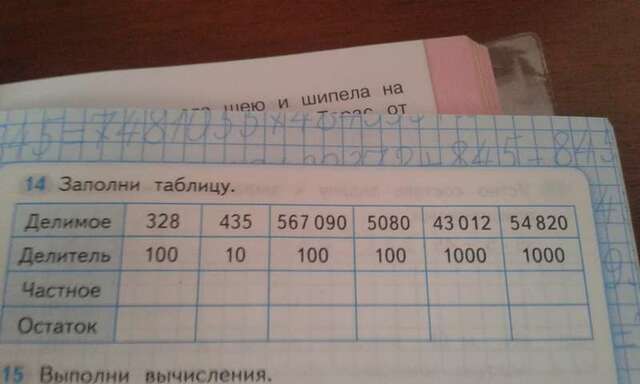 шею и шипела на
от
14 Заполни таблицу.
Делимое 328 435 567 090 5080 43 012 54 820
Делитель 100 10 100 100 1000 1000
Частное
Остаток
15 Выполни вычисления.